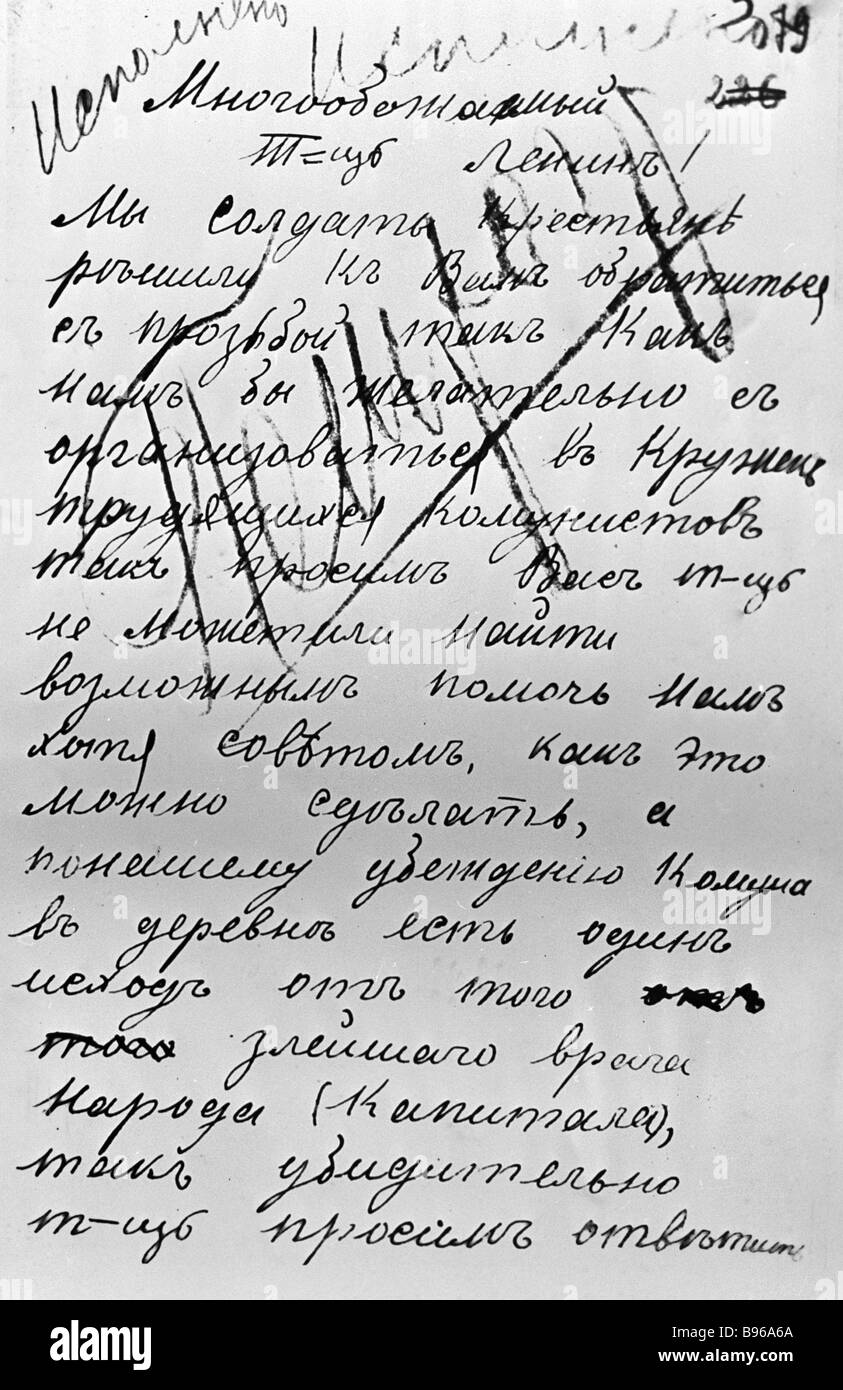 Исполнено
Исполнено 3079
226
Многообожаемый
Т=щъ Ленинъ!
Мы солдаты Крестьянѣ
рѣшили къ Вамъ обратиться
съ прозьбой такъ Какъ
намъ бы желательно съ
организоваться въ Кружекъ
трудящихся Комунистовъ
такъ просимъ Васъ т-щъ
не можетили найти
возможнымъ помочь намъ
хотя совѣтомъ, какъ это
можно сдѣлать, а
понашему убежденію Комуна
въ деревнѣ есть одинъ
исходъ отъ того отъ
того злейшаго врага
Народа (Капитала),
такъ убидительно
т-щъ просимъ отвѣтить
alamy
Image ID: B96A6A
www.alamy.com